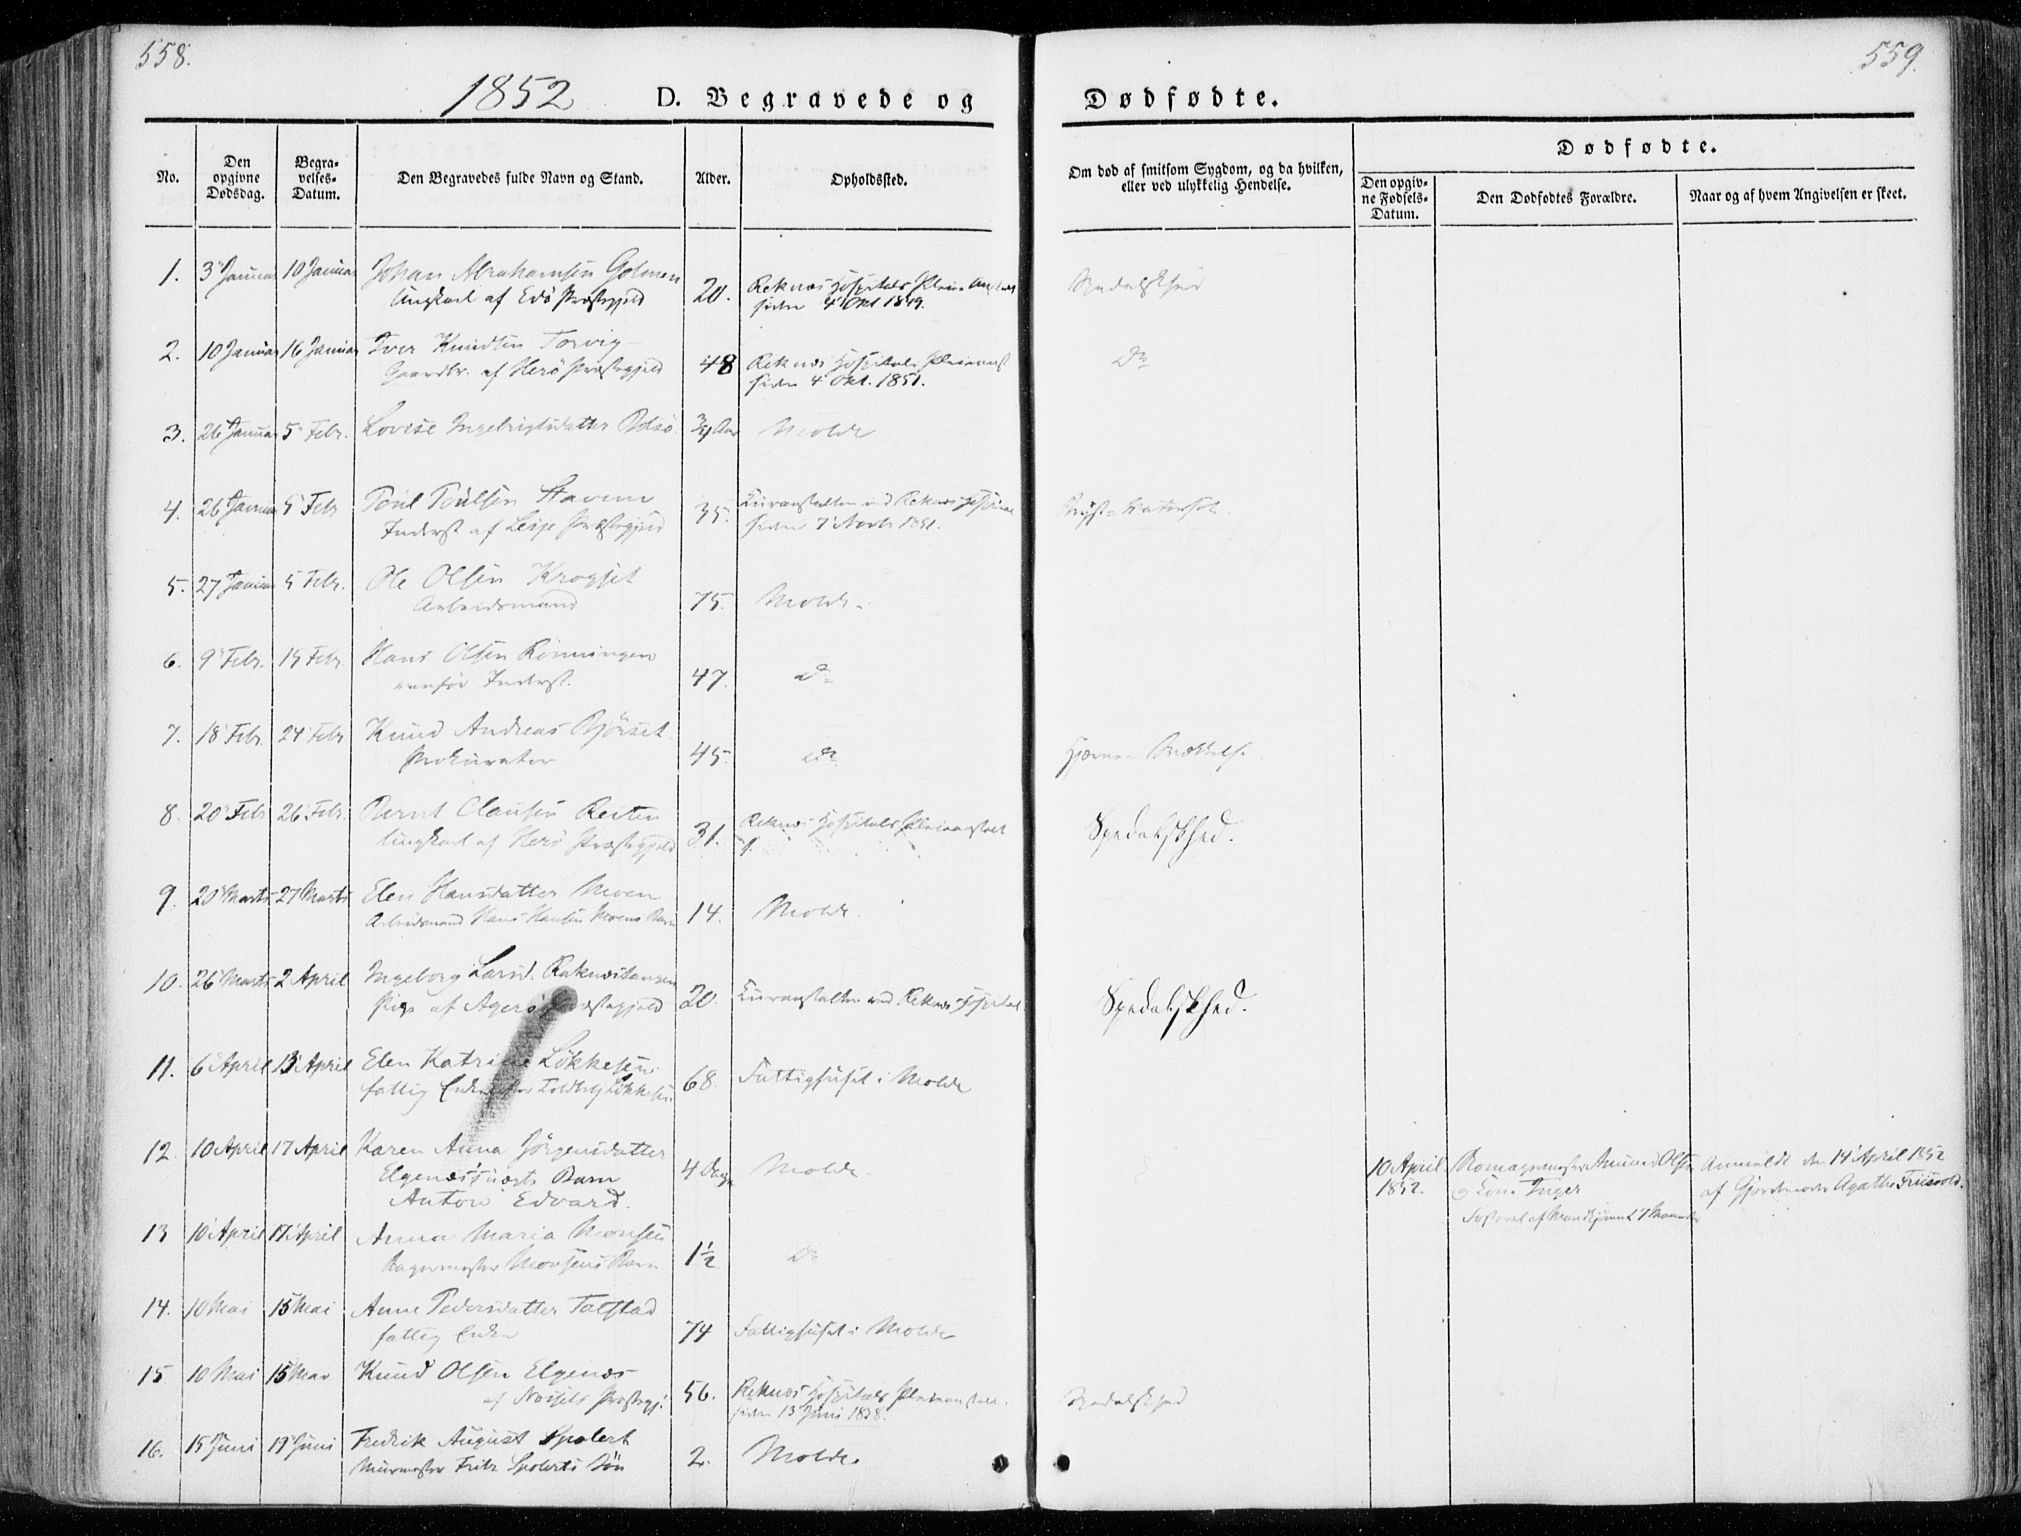 558.
559.
1852
D. Begravede og
Dødfødte.
No.
Den opgivne Dødsdag.
Begravelses-Datum.
Den Begravedes fulde Navn og Stand.
Alder.
Opholdssted.
Om død af smitsom Sygdom, og da hvilken, eller ved ulykkelig Hendelse.
Dødfødte.
Den opgivne Fødsels-Datum.
Den Dødfødtes Forældre.
Naar og af hvem Angivelsen er skeet.
1. 3 Januar 10 Januar Johan Abrahamsen Golmen 20. Reknæs Hospitals Spedalskhed
Ungkarl af Edø Præstegjeld siden 4 Okt 1849.
2. 10 Januar 16 Januar Iver Knudsen Torvig 48 Reknæs Hospitals Pleieanst Do
Gaardbr. af Herø Præstegjeld siden 4 Okt. 1851.
3. 26 Januar 5 Febr. Lovise Ingebrigtsdatter Bolsø 3/4 Aar Molde
4. 26 Januar 5 Febr Poul Poulsen Staven 35. Kuranstalten ved Reknæs Hospital Bryst-
Inderst af Lesje Præstegjeld siden 7 Novb 1851.
5. 27 Januar 5 Febr. Ole Olsen Krogset 75. Molde.
Arbeidsmand
6. 9 Febr. 15 Febr. Hans Olsen Rønningen 47. Do
vanfør Inderst.
7. 18 Febr 24 Febr Knud Andreas Bjørset 45. Do Hjerne-
Prokurator
8. 20 Febr 26 Febr. Bernt Clausen Resten 31. Reknæs Hospitals Pleieanstalt Spedalskhed.
Ungkarl af Herø Præstegjeld
9. 20 Marts 27 Marts Elen Hansdatter Moen 14. Molde.
Arbeidsmand Hans Hansen Moens Barn
10. 26 Marts 2 April Ingeborg Larsd. Reknæstangen 20. Kuranstalten ved Reknæs Hospital Spedalskhed.
Pige af Agerø Præstegjeld
11. 6 April 13 April Elen Katrine Løkkesen 68. Fattighuset i Molde
fattig Enke efter Toldbetj Løkkesen
12. 10 April 17 April Karen Anna Jørgensdatter 4 Dage Molde.
Elgenæs's uægte Barn
Anton Edvard.
10 April 1852.
Amund Olsen
Kone Inger
Anmeldt den 14 April 1852
af Gjordemoder Agathe Friisvold.
13 10 April 17 April Anna Maria Monsen 1½ Do
Bagermester Monsens Barn
14. 10 Mai 15 Mai Anne Pedersdatter Talstad 74 Fattighuset i Molde
fattig Enke
15 10 Mai 15 Mai Knud Olsen Elgenæs 56. Reknæs Hospitals Pleieanstalt. Spedalskhed
af Næssets Præstegj: siden 13 Juni 1838.
16. 15 Juni 19 Juni Fredrik August Spolert 2. Molde.
Muurmester Fritz Spolerts Søn